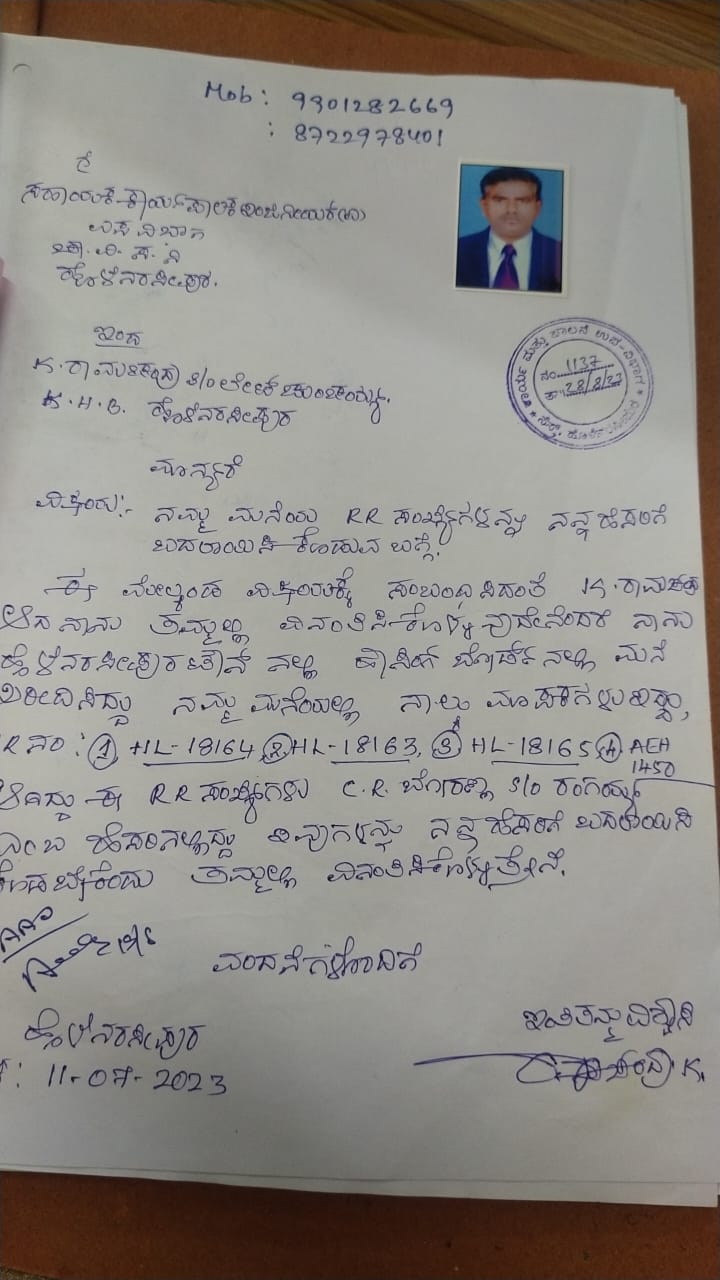 Mob: 9901282669
: 8722978401
ಗೆ
ಸಹಾಯಕ ಕಾರ್ಯಪಾಲಕ ಇಂಜಿನಿಯರ್(ವಿ)
ಉಪ ವಿಭಾಗ
ಹೊಳೆನರಸೀಪುರ.
ಇಂದ
K. ರಾಮಚಂದ್ರ S/o ಲೇಟ್
K.H.B. ಹೊಳೆನರಸೀಪುರ
ನಂ. 1137
ದಿ: 28/8/23
ಮಾನ್ಯರೆ
ವಿಷಯ:- ನಮ್ಮ ಮನೆಯ RR ಸಂಖ್ಯೆಗಳನ್ನು ನನ್ನ ಹೆಸರಿಗೆ
ಬದಲಾಯಿಸಿ ಕೊಡುವ ಬಗ್ಗೆ.
ಈ ಮೇಲ್ಕಂಡ ವಿಷಯಕ್ಕೆ ಸಂಬಂಧಿಸಿದಂತೆ K. ರಾಮಚಂದ್ರ
ಆದ ನಾನು ತಮ್ಮಲ್ಲಿ ವಿನಂತಿಸಿಕೊಳ್ಳುವುದೇನೆಂದರೆ ನಾನು
ಹೊಳೆನರಸೀಪುರ ಟೌನ್ ನಲ್ಲಿ ಹೌಸಿಂಗ್ ಬೋರ್ಡ್ ನಲ್ಲಿ ಮನೆ
ಖರೀದಿಸಿದ್ದು ನಮ್ಮ ಮನೆಯಲ್ಲಿ ನಾಲ್ಕು ಮಾಪಕಗಳು ಇದ್ದು,
RR ನಂ: ① HL-18164 ② HL-18163, ③ HL-18165 ④ AEH
1450
ಆಗಿದ್ದು ಈ RR ಸಂಖ್ಯೆಗಳು C.R. ಬೋರಣ್ಣ S/o ರಂಗಯ್ಯ
ಎಂಬ ಹೆಸರಿನಲ್ಲಿದ್ದು ಇವುಗಳನ್ನು ನನ್ನ ಹೆಸರಿಗೆ ಬದಲಾಯಿಸಿ
ಕೊಡಬೇಕೆಂದು ತಮ್ಮಲ್ಲಿ ವಿನಂತಿಸಿಕೊಳ್ಳುತ್ತೇನೆ.
AAO
ವಂದನೆಗಳೊಂದಿಗೆ
ಇಂತಿ ತಮ್ಮ ವಿಶ್ವಾಸಿ
ಹೊಳೆನರಸೀಪುರ
: 11-07-2023